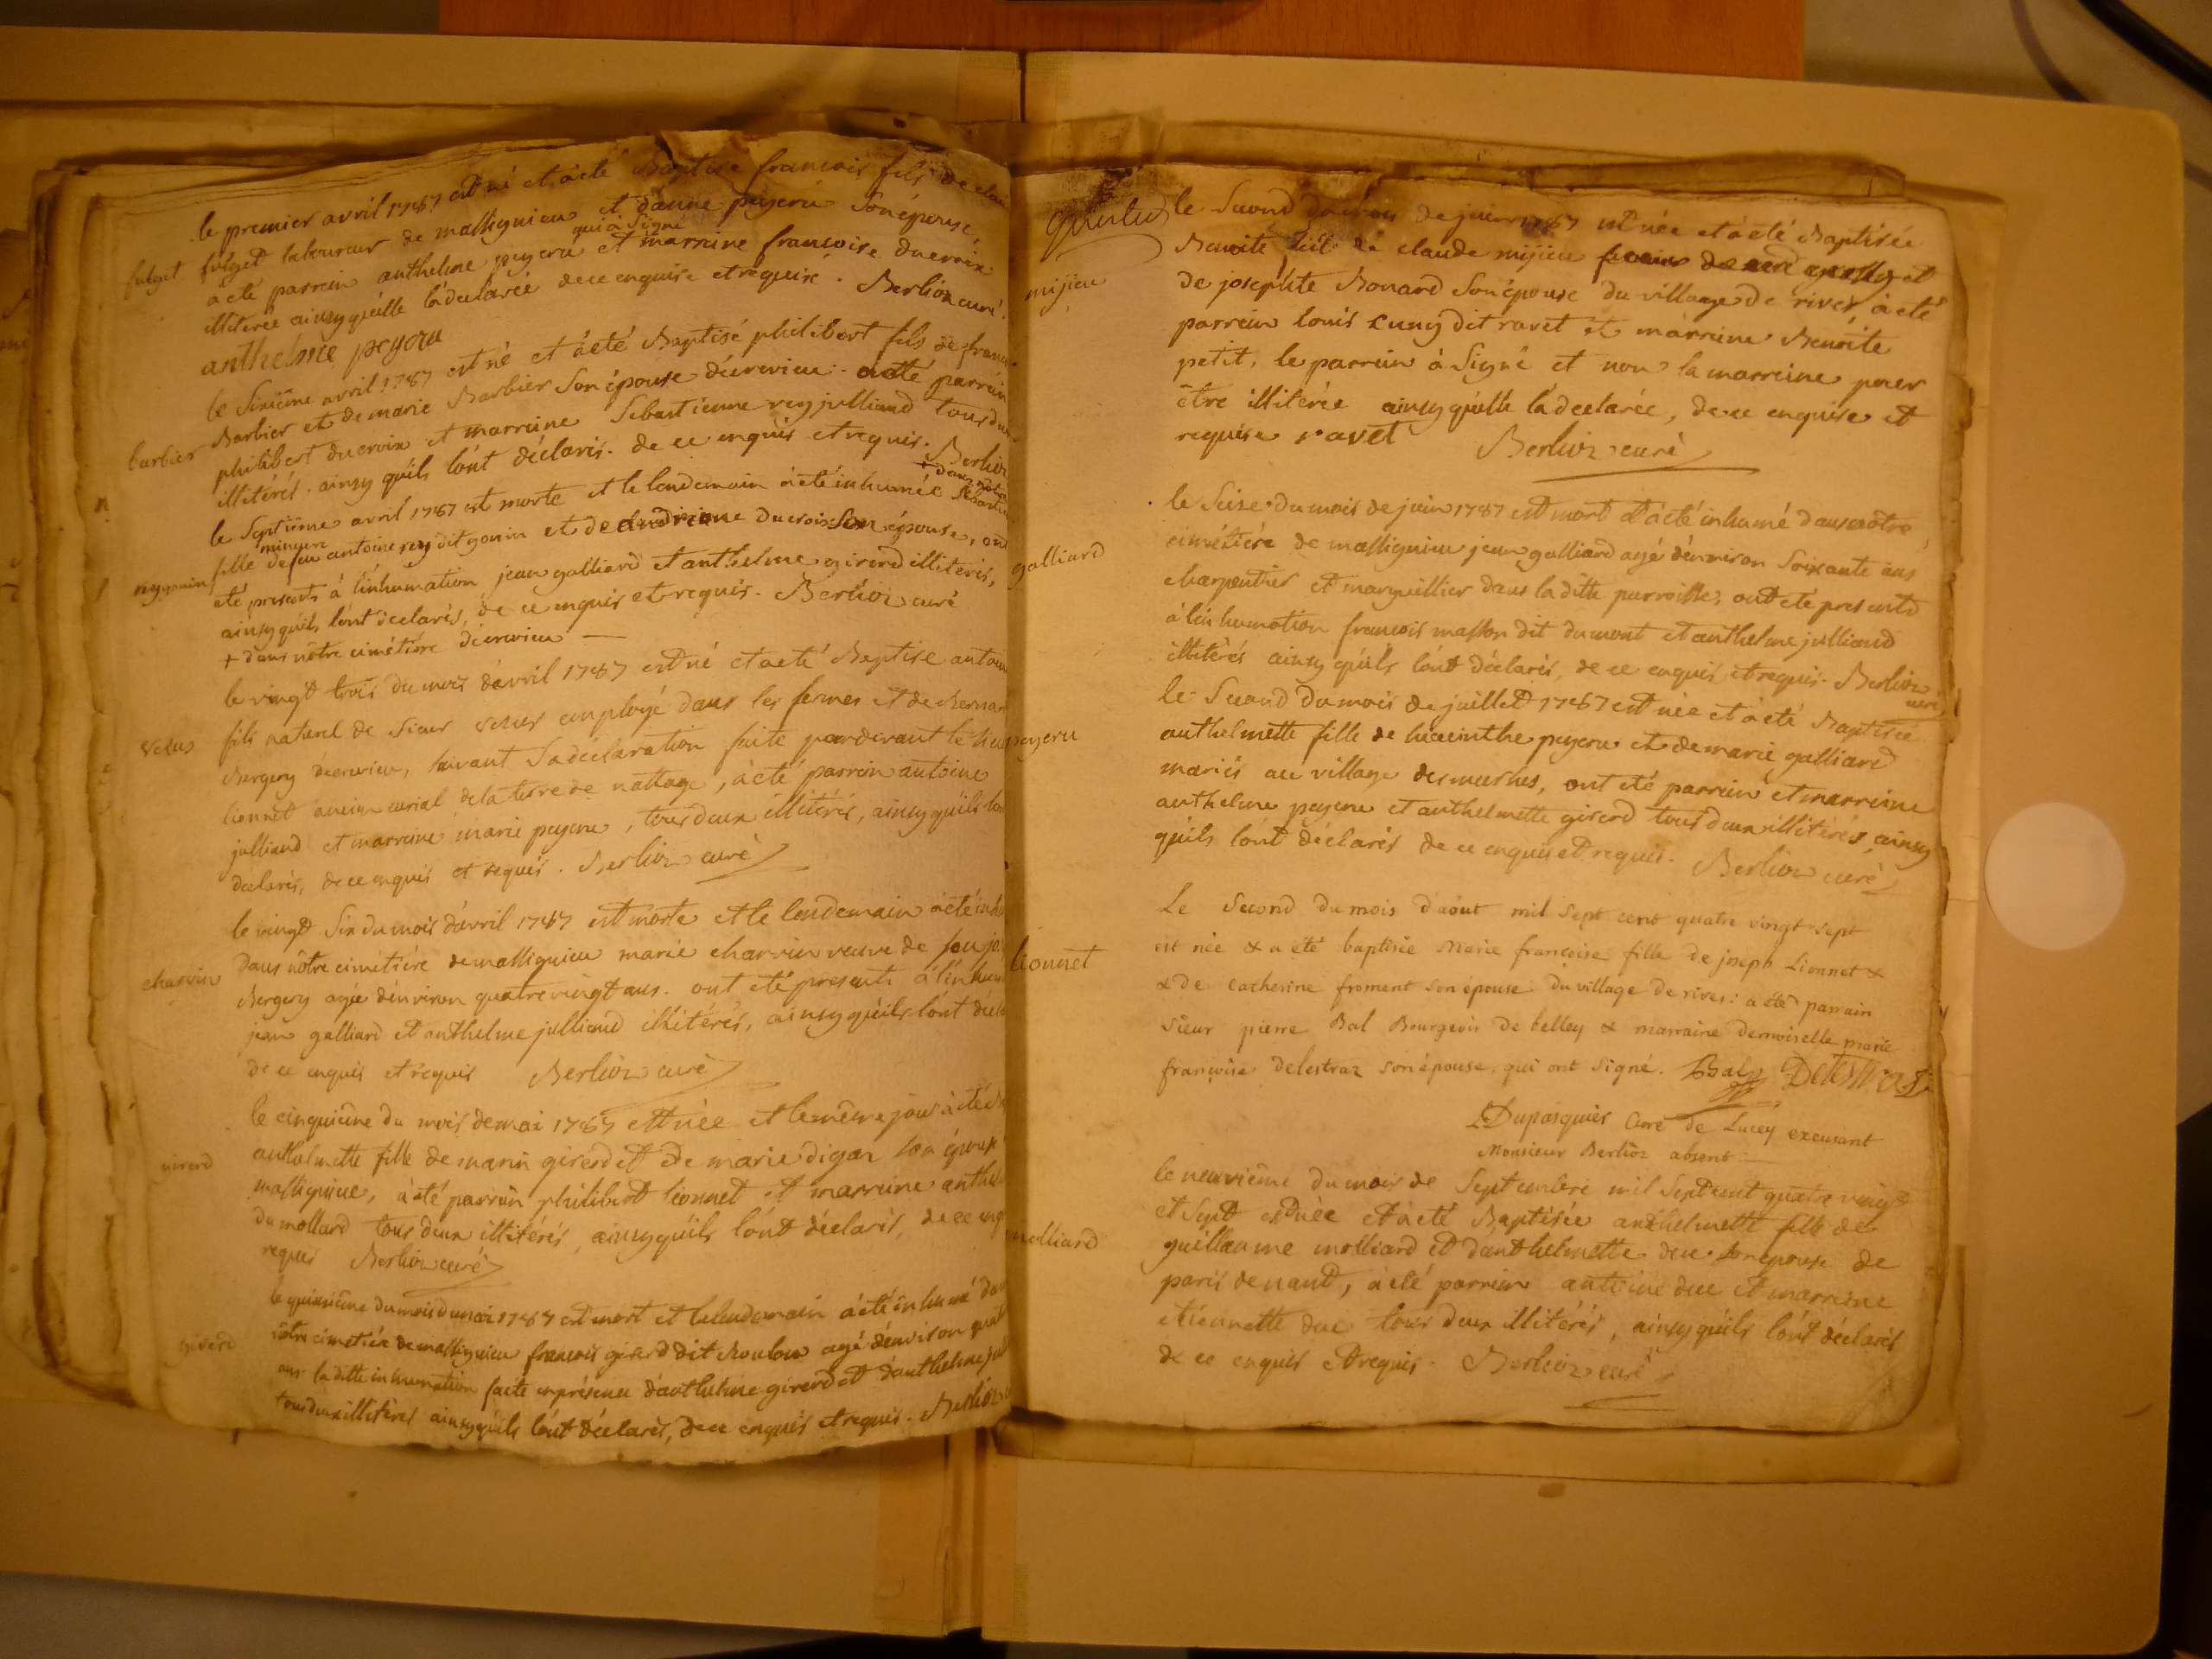 le premier avril 1787 est né et à eté Baptisé francois fils de clau
fulget
fulget laboureur de massignieu et d'anne peyeru son épouse,
à eté parrein anthelme peyeru qui à Signé et marreine francoise ducroix
illiterée ainsy qu'elle l'a declarée de ce enquise et requise. Berlioz curé.
anthelme peyeru
le Sixième avril 1787 est né et à eté Baptisé philibert fils de franc
barbier
Barbier et de marie Barbier son épouse d'écrivieu. a eté parrein
philibert ducroix et marreine Sebastienne rey julliand tous d
illitérés. ainsy qu'ils l'ont déclarés. de ce enquis et requis. Berlioz
+ dans notre
le Septième avril 1787 est morte et le lendemain à eté inhumée
reygonin
fille mineure de feu antoine rey dit gonin et de ducroix son épouse, ont
eté presents à l'inhumation jean galliard et anthelme girerd illiterés,
ainsy qu'ils l'ont declarés, de ce enquis et requis. Berlioz curé
+ dans notre cimétière d'ecrivieu
le vingt trois du mois d'avril 1787 est né et a eté Baptisé antoin
fils naturel de Sieur employé dans les fermes et de Bernar
Bergery d'ecrivieu, Suivant Sa déclaration faite pardevant le Sieur
lionnet ancien curial de la terre de nattage, à eté parrein antoine
julliand et marreine marie peyeru, tous deux illitérés, ainsy qu'ils lon
declarés, de ce enquis et requis. Berlioz curé
le vingt Six du mois d'avril 1787 est morte et le lendemain à eté inhu
charvin
dans notre cimetiére de massignieu marie charvin veuve de feu je
Bergery agée d'environ quatre vingt ans. ont eté presents à l'inhum
jean galliard et anthelme julliand illitérés, ainsy qu'ils l'ont décla
de ce enquis et requis Berlioz curé
le cinquième du mois de mai 1787 est née et le même jour à eté
girerd
anthelmette fille de marin girerd et de marie digaz son épouse
massignieu, à eté parrein philibert lionnet et marreine anthel
du mollard tous deux illitérés, ainsy qu'ils l'ont déclarés, de ce enq
requis Berlioz curé
le quinzième du mois de mai 1787 est mort et le lendemain à eté inhumé dan
girerd
nôtre cimetiére de massignieu francois girerd dit agé d'environ quat
ans la ditte inhumation faite en présence d'anthelme girerd et d'anthelme jull
tous deux illitérés ainsy qu'ils l'ont déclarés, de ce enquis et requis. Berlioz
le Second du mois de juin 1787 est née et à eté Baptisée
Benoite fille de claude mijieu et
mijieu
de josephte Bonard son épouse du village de rives, à eté
parrein louis cuny dit ravet et marreine Benoite
petit, le parrein à Signé et non la marreine pour
être illitérée ainsy qu'elle l'a declarée, de ce enquise et
requise ravet Berlioz curé
le Seise du mois de juin 1787 est mort et à eté inhumé dans notre
galliard
cimétiére de massignieu jean galliard agé d'environ Soixante ans
charpentier et marguillier dans la ditte parroisse, ont eté presents
à l'inhumation francois masson dit dumont et anthelme julliand
illitérés ainsy qu'ils l'ont déclarés, de ce enquis et requis. Berlioz
curé
le Second du mois de juillet 1787 est née et à eté Baptisée
peyeru
anthelmette fille de hiacinthe peyeru et de marie galliard
mariés au village des meches, ont eté parrein et marreine
anthelme peyeru et anthelmette girerd tous deux illitérés, ainsy
qu'ils l'ont déclarés de ce enquis et requis. Berlioz curé
Le Second du mois d'août mil Sept cent quatre vingt-sept
est née & a été baptisée Marie françoise fille de joseph Lionnet &
lionnet
& de catherine froment son épouse du village de rives: a été parrain
sieur pierre Bal Bourgeois de belley & marraine demoiselle marie
françoise delestraz son épouse, qui ont signé. Bal Delestraz
Dupasquier Curé de Lucey excusant
Monsieur Berlioz absent
le neuvième du mois de Septembre mil Sept cent quatre vingt
et Sept est née et à eté Baptisée anthelmette fille de
molliard
guillaume molliard et d'anthelmette duc son epouse de
paris de nant, à eté parrein antoine duc et marreine
etiennette duc tous deux illitérés, ainsy qu'ils l'ont déclarés
de ce enquis et requis. Berlioz curé